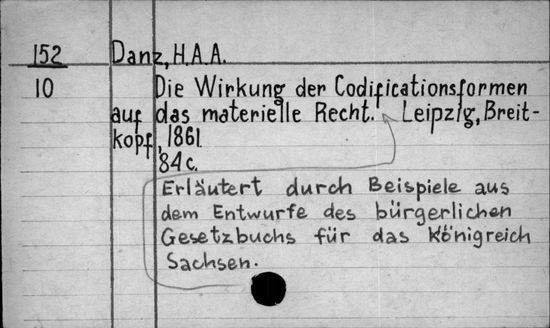 152 Danz, H.A.A.
10 Die Wirkung der Codificationsformen
auf das materielle Recht. Leipzig, Breit-
kopf, 1861.
84 c.
Erläutert durch Beispiele aus
dem Entwurfe des bürgerlichen
Gesetzbuchs für das Königreich
Sachsen.